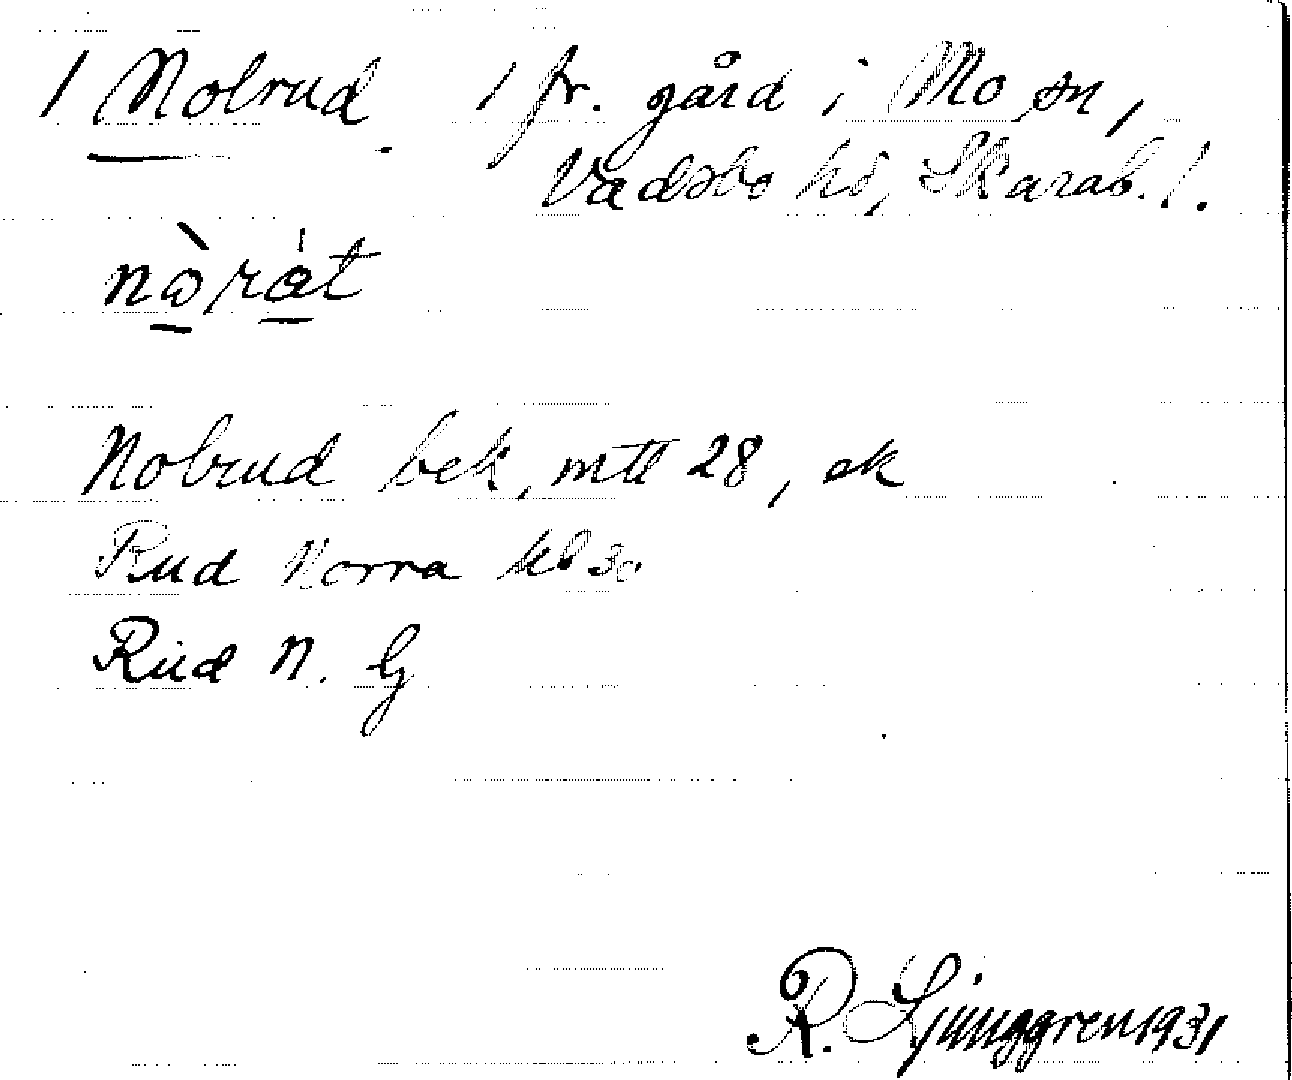 1 Nolrud 1 fr. gård i Mo sn,
Vadsbo hd, Skarab. l.
nòràt
Nobrud bek, mtl 28, ek
Rud Norra kb 30
Rud N. G
R. Ljunggren 1931